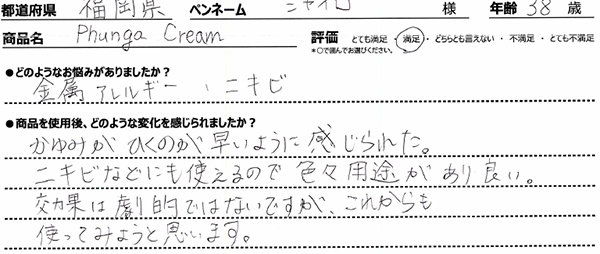 都道府県 福岡県 ペンネーム ニャイロ 様 年齢 38 歳
商品名 Phunga Cream 評価 とても満足・満足・どちらとも言えない・不満足・とても不満足
*○で囲んでお選びください。
●どのようなお悩みがありましたか?
金属アレルギー、ニキビ
●商品を使用後、どのような変化を感じられましたか?
かゆみがひくのが早いように感じられた。
ニキビなどにも使えるので色々用途があり良い。
効果は劇的ではないですが、これからも
使ってみようと思います。